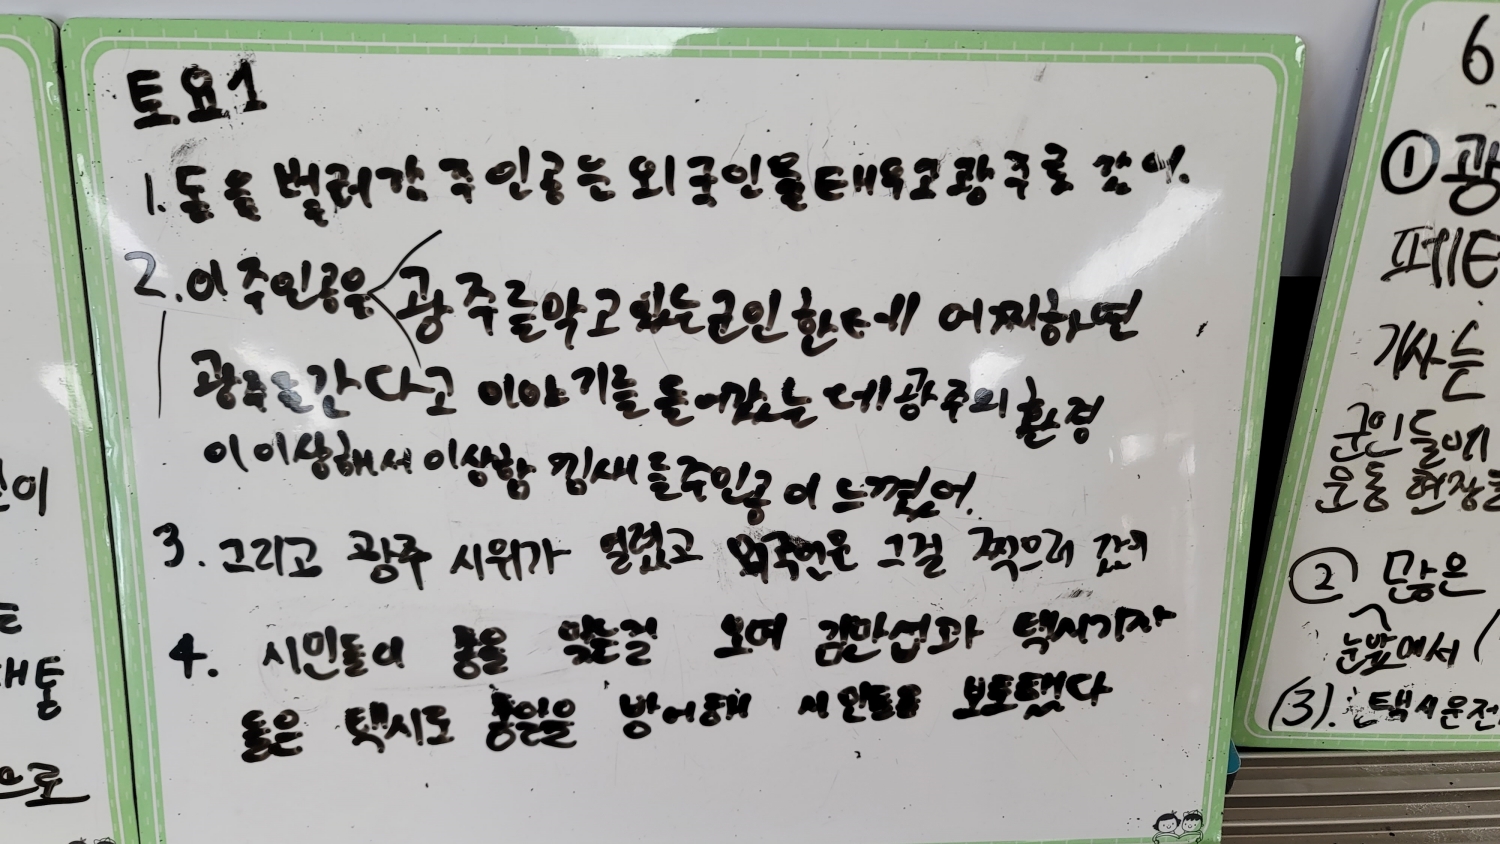 토요1
1. 돈을 벌러간 주인공는 외국인을태우고광주로 갔어.
2. 이 주인공은 광주를막고 있는군인한테 어찌하면
광주를간다고 이야기를 들어갔는데 광주의환경
이이상해서 이상함 낌새를주인공이 느꼈어.
3. 그리고 광주 시위가 열렸고 외국인은 그걸 찍으러 갔어
4. 시민들이 총을 맞는걸 보며 김만섭과 택시기자
들은 택시로 총알을 방어해 시민들을 보호했다
6
①광
페터
기사는
군인들에게
운동 현장을
② 많은
눈앞에서
(3). 택시운전
으로